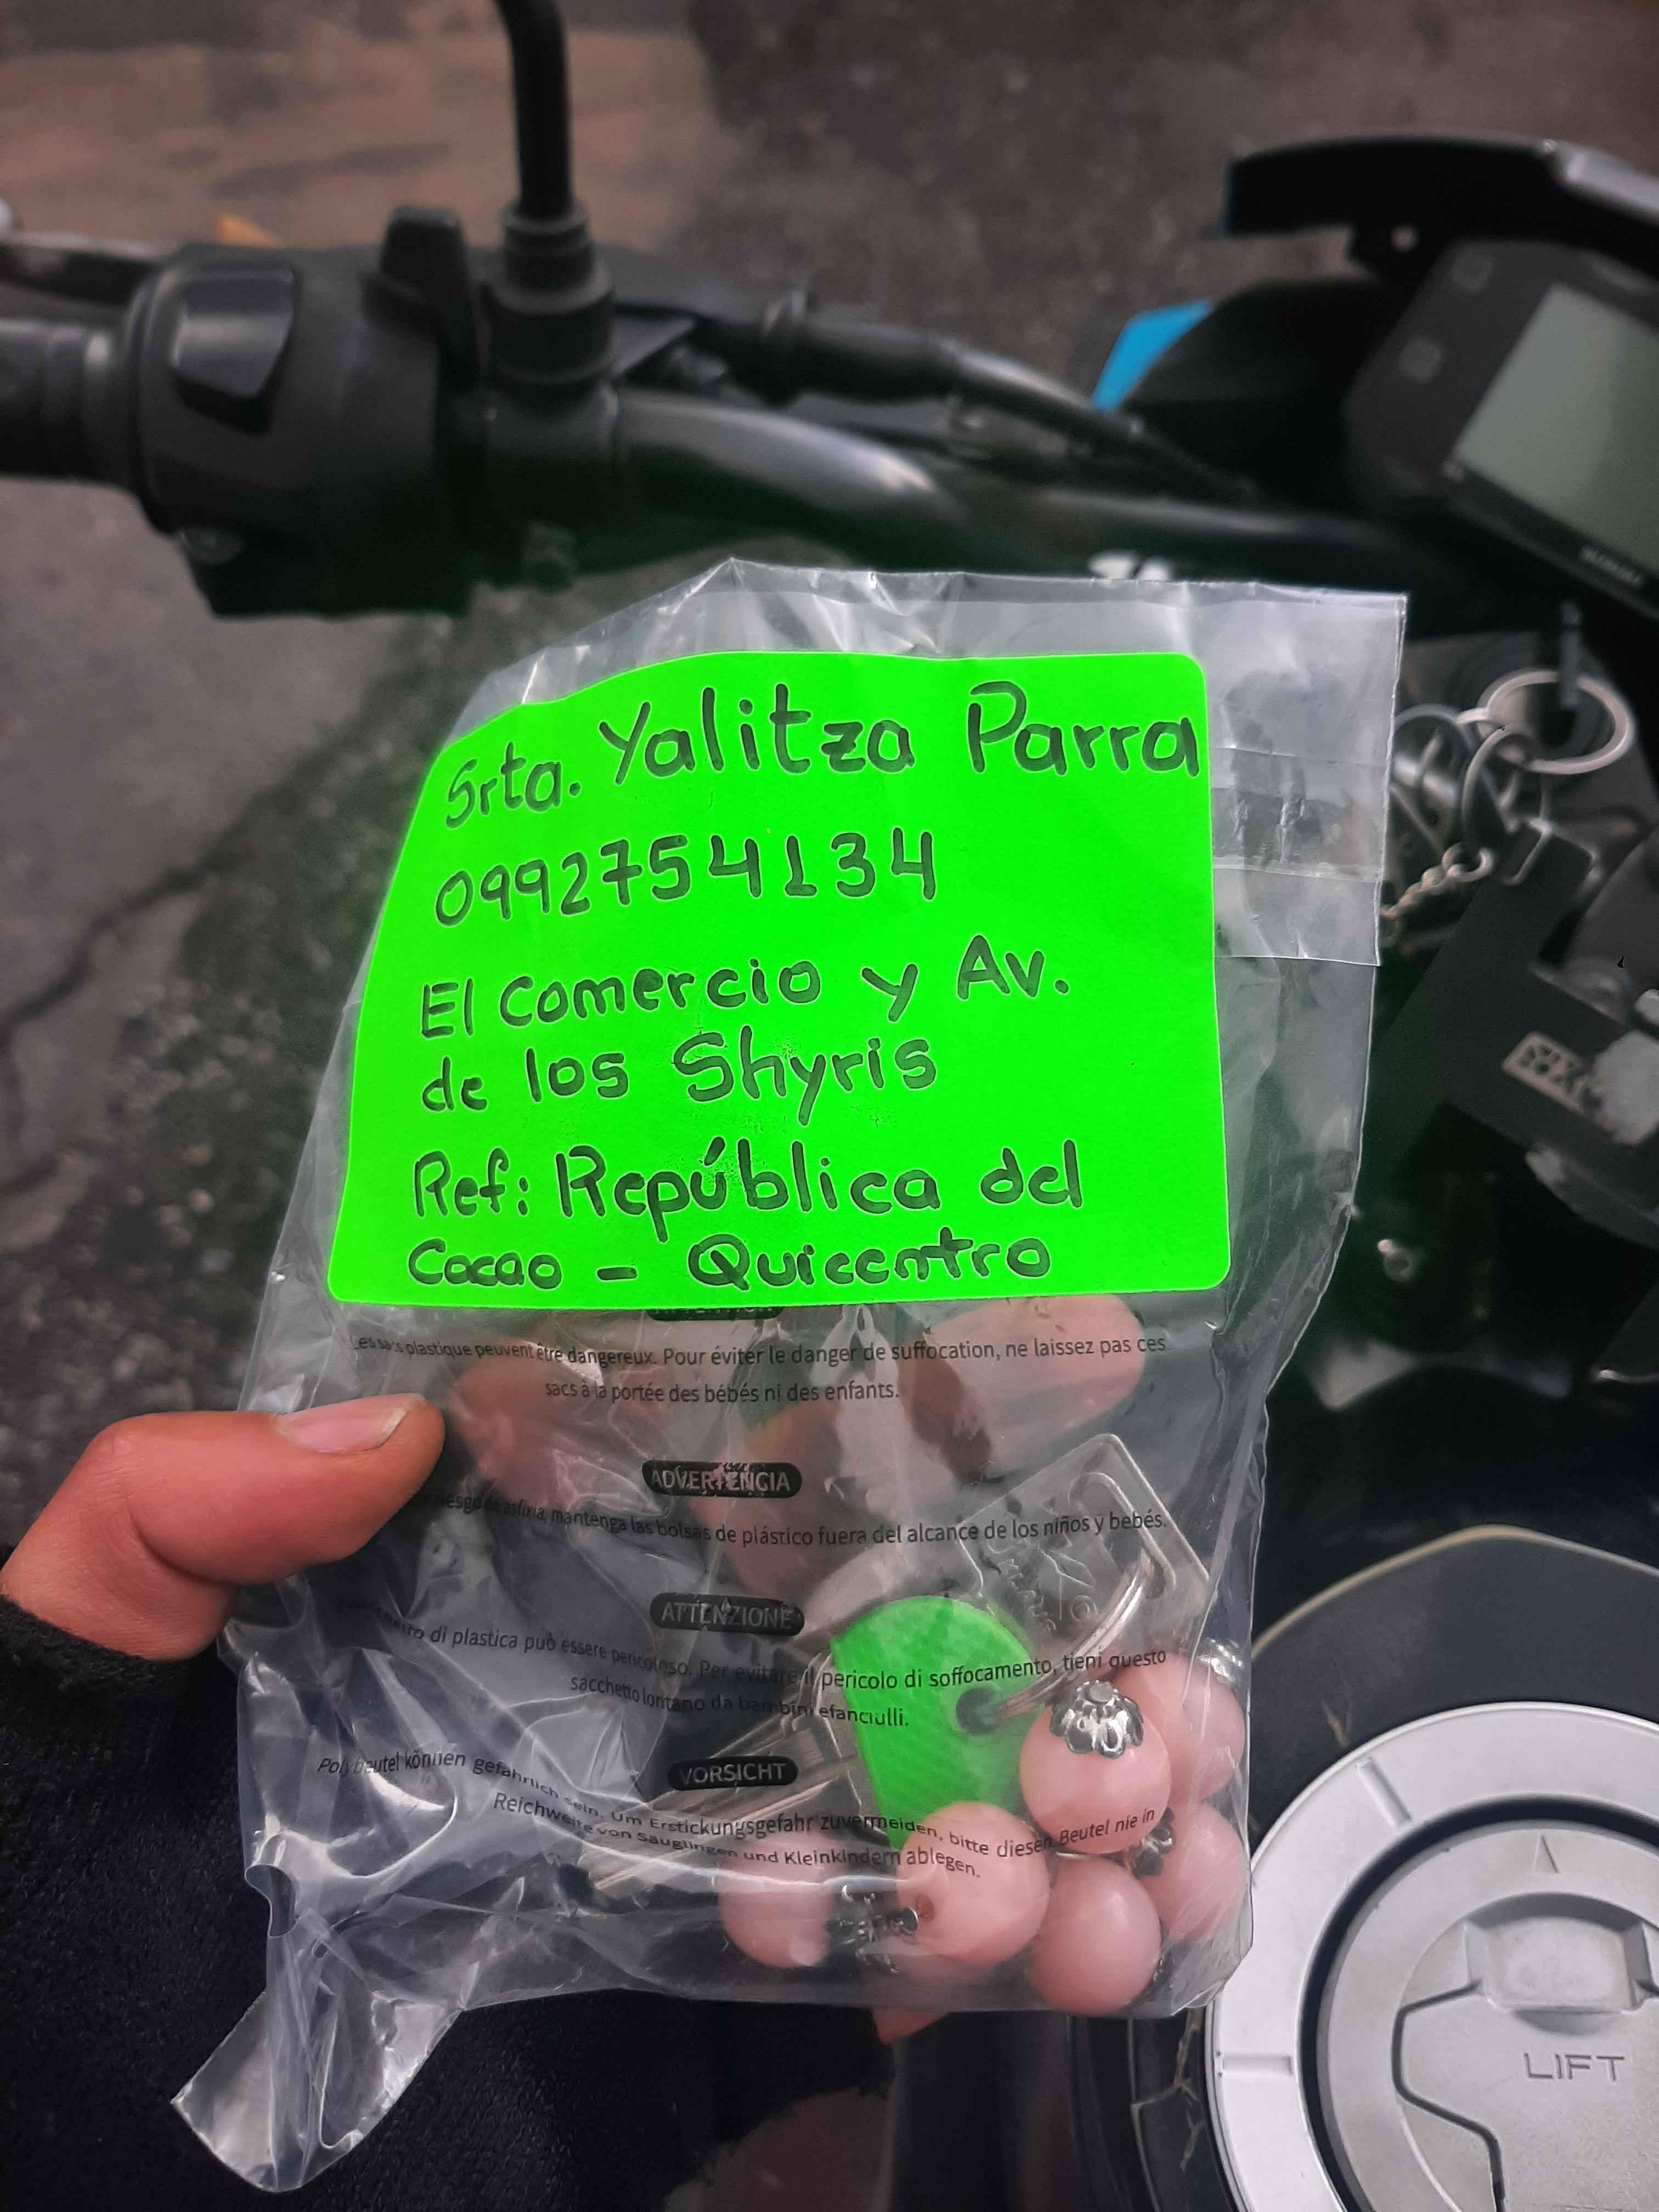 Srta. Yalitza Parra
0992754134
El Comercio y Av.
de los Shyris
Ref: República del
Cacao - Quicentro
Les sacs plastique peuvent être dangereux. Pour éviter le danger de suffocation, ne laissez pas ces
sacs à la portée des bébés ni des enfants.
ADVERTENCIA
riesgo de asfixia, mantenga las bolsas de plástico fuera del alcance de los niños y bebés.
ATTENZIONE
di plastica può essere pericoloso. Per evitare il pericolo di soffocamento, tieni questo
sacchetto lontano da bambini e fanciulli.
VORSICHT
Polybeutel können gefährlich sein. Um Erstickungsgefahr zuvermeiden, bitte diesen Beutel nie in
Reichweite von Säuglingen und Kleinkindern ablegen.
LIFT